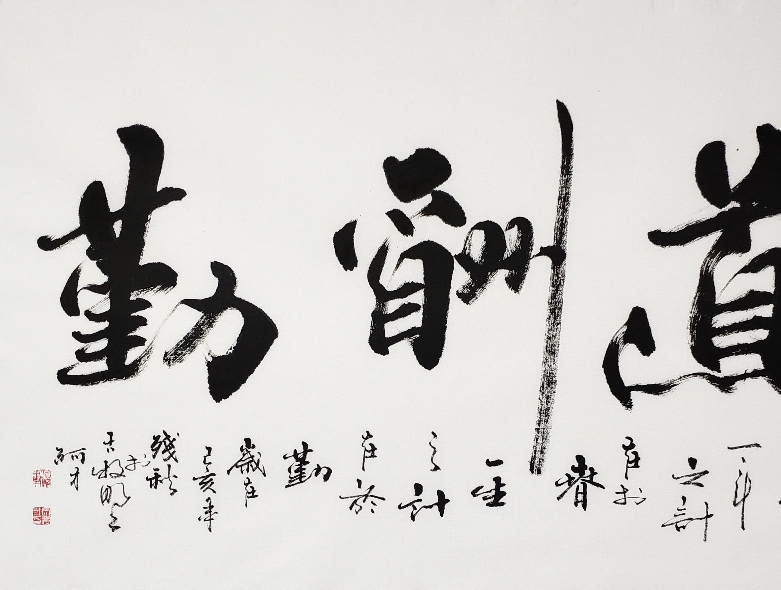 道酬勤
一年
之計
在於
春
一生
之計
在於
勤
歲在
己亥年
殘秋
於